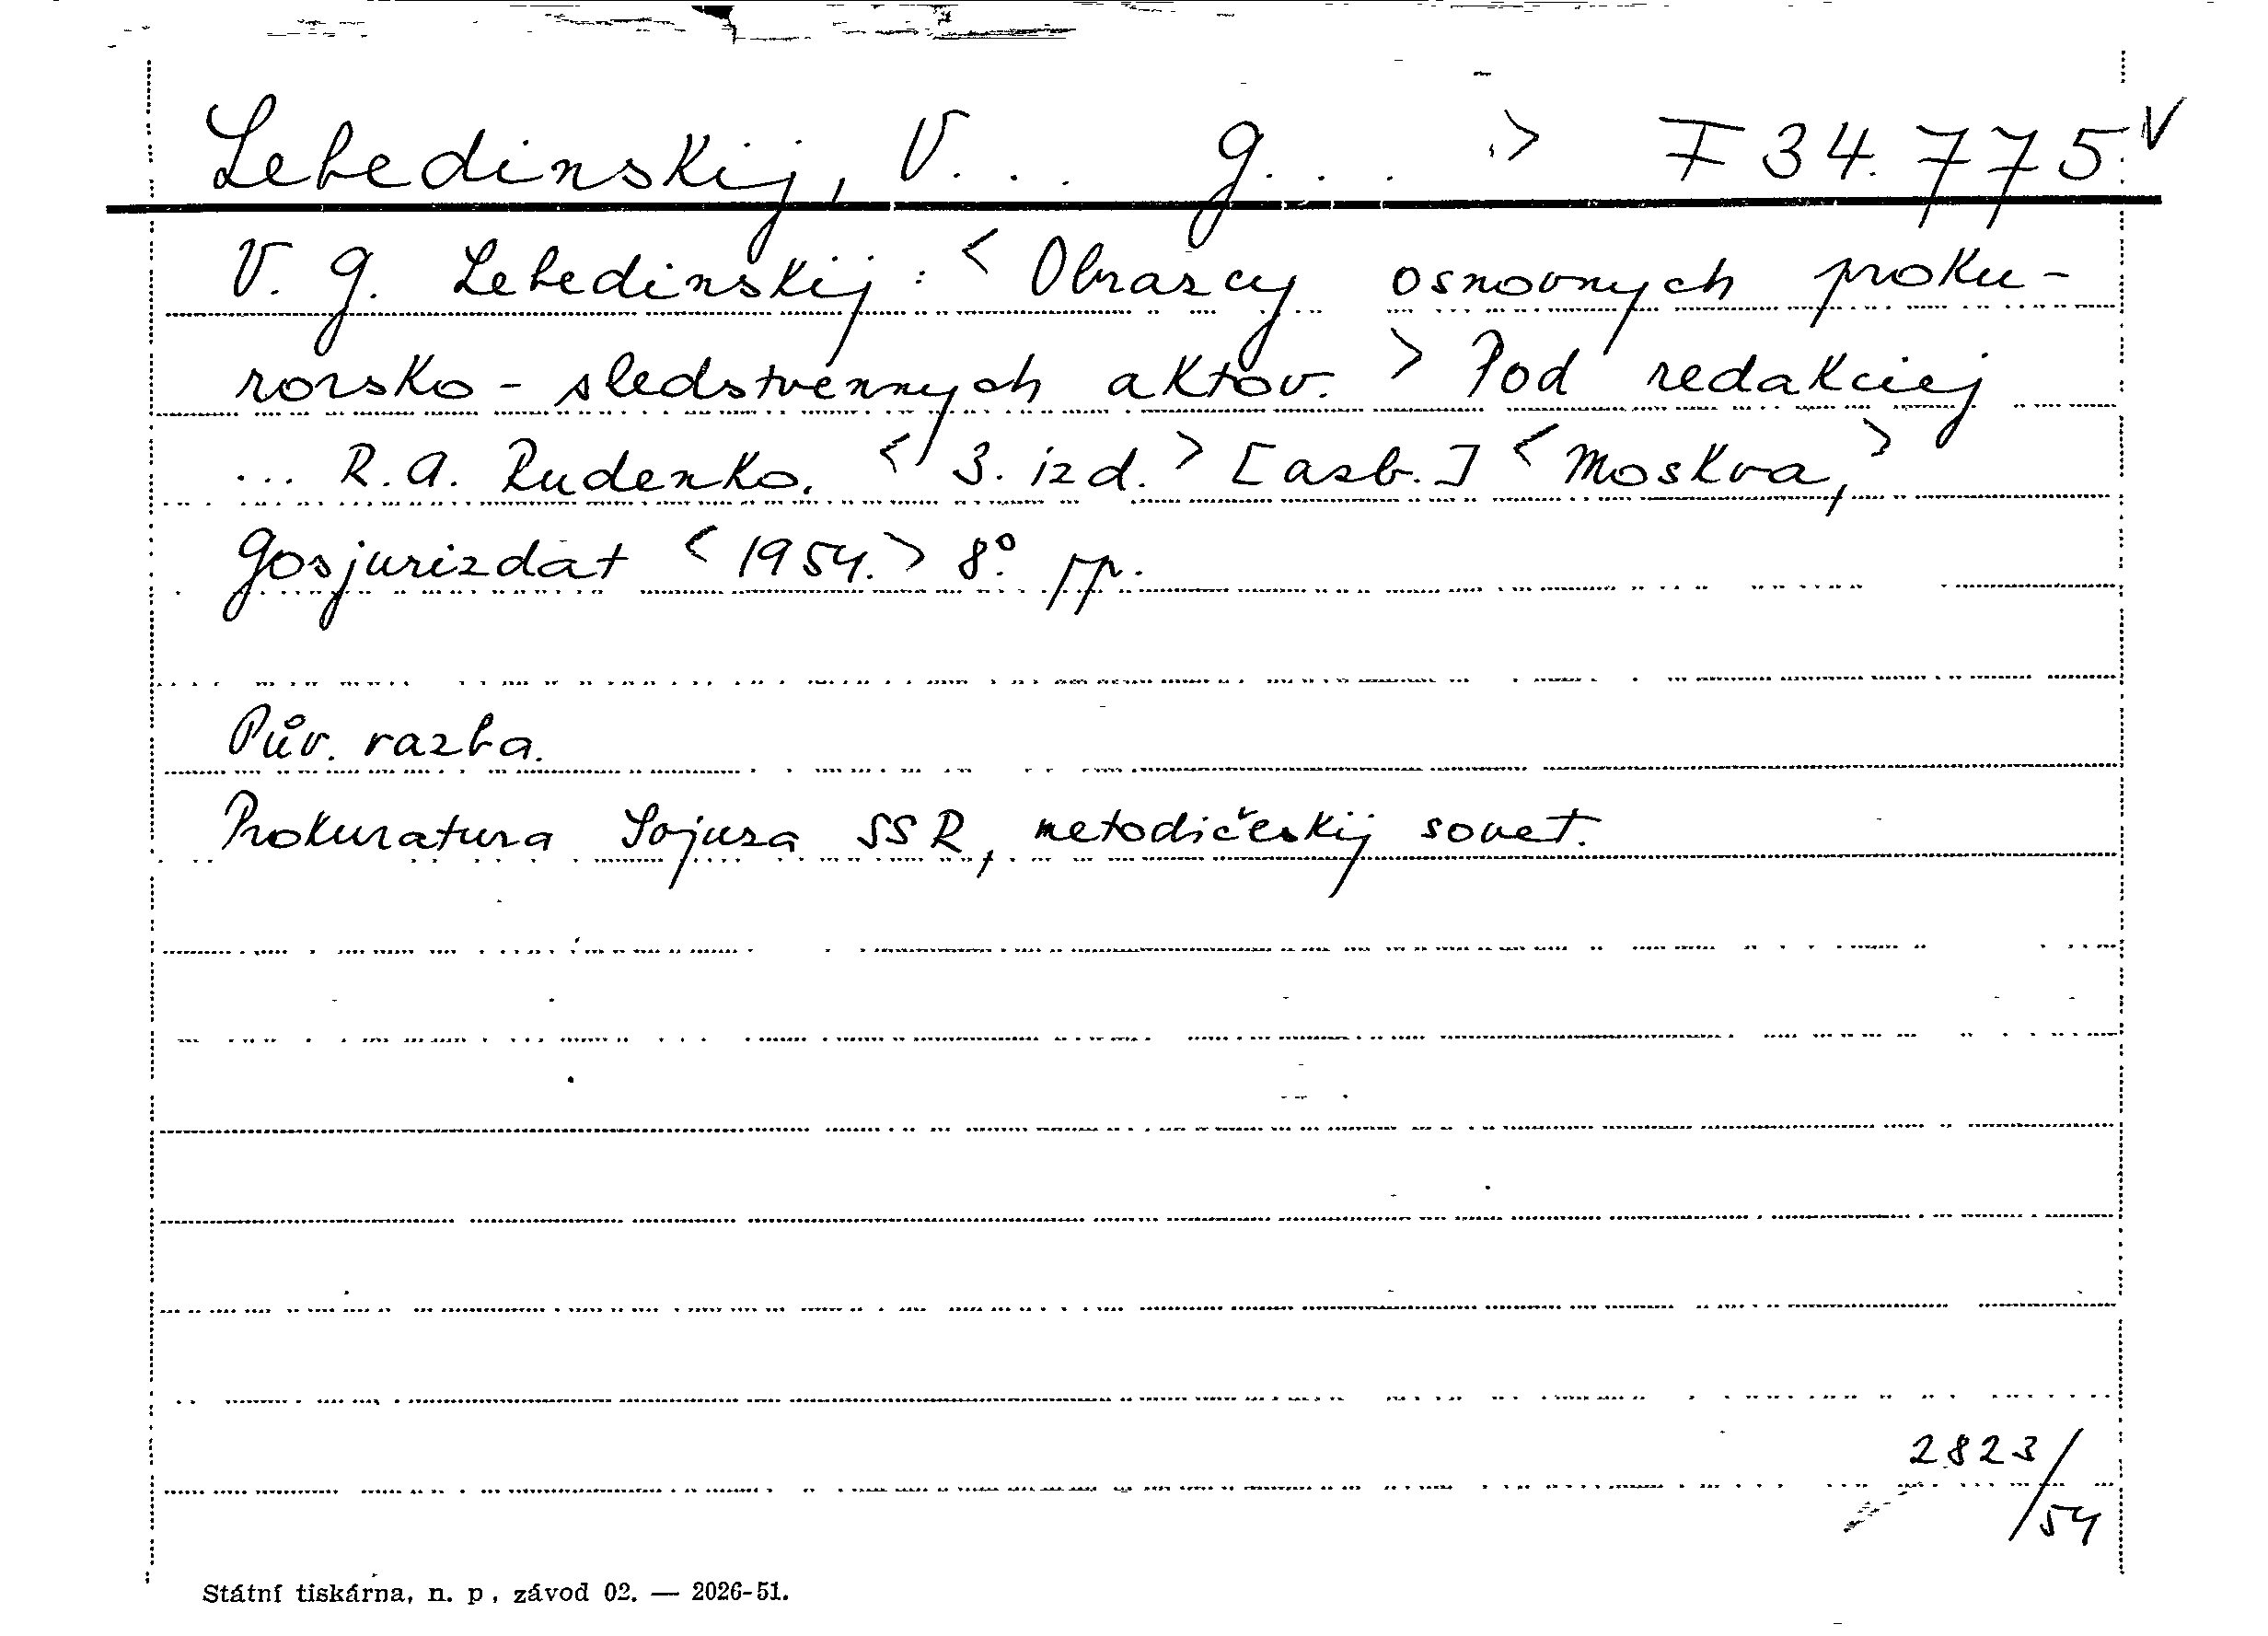 Lebedinskij, V... G... > F 34.775. V
V. G. Lebedinskij: < Obrazcy osnovnych proku-
rorsko-sledstvennych aktov. > Pod redakciej
... R.A. Rudenko. < 3. izd. > [azb.] < Moskva, >
Gosjurizdat < 1954. > 8° pp.
Pův. vazba.
Prokuratura Sojuza SSR, metodičeskij sovet.
2823/
/54
Státní tiskárna, n. p, závod 02. — 2026-51.